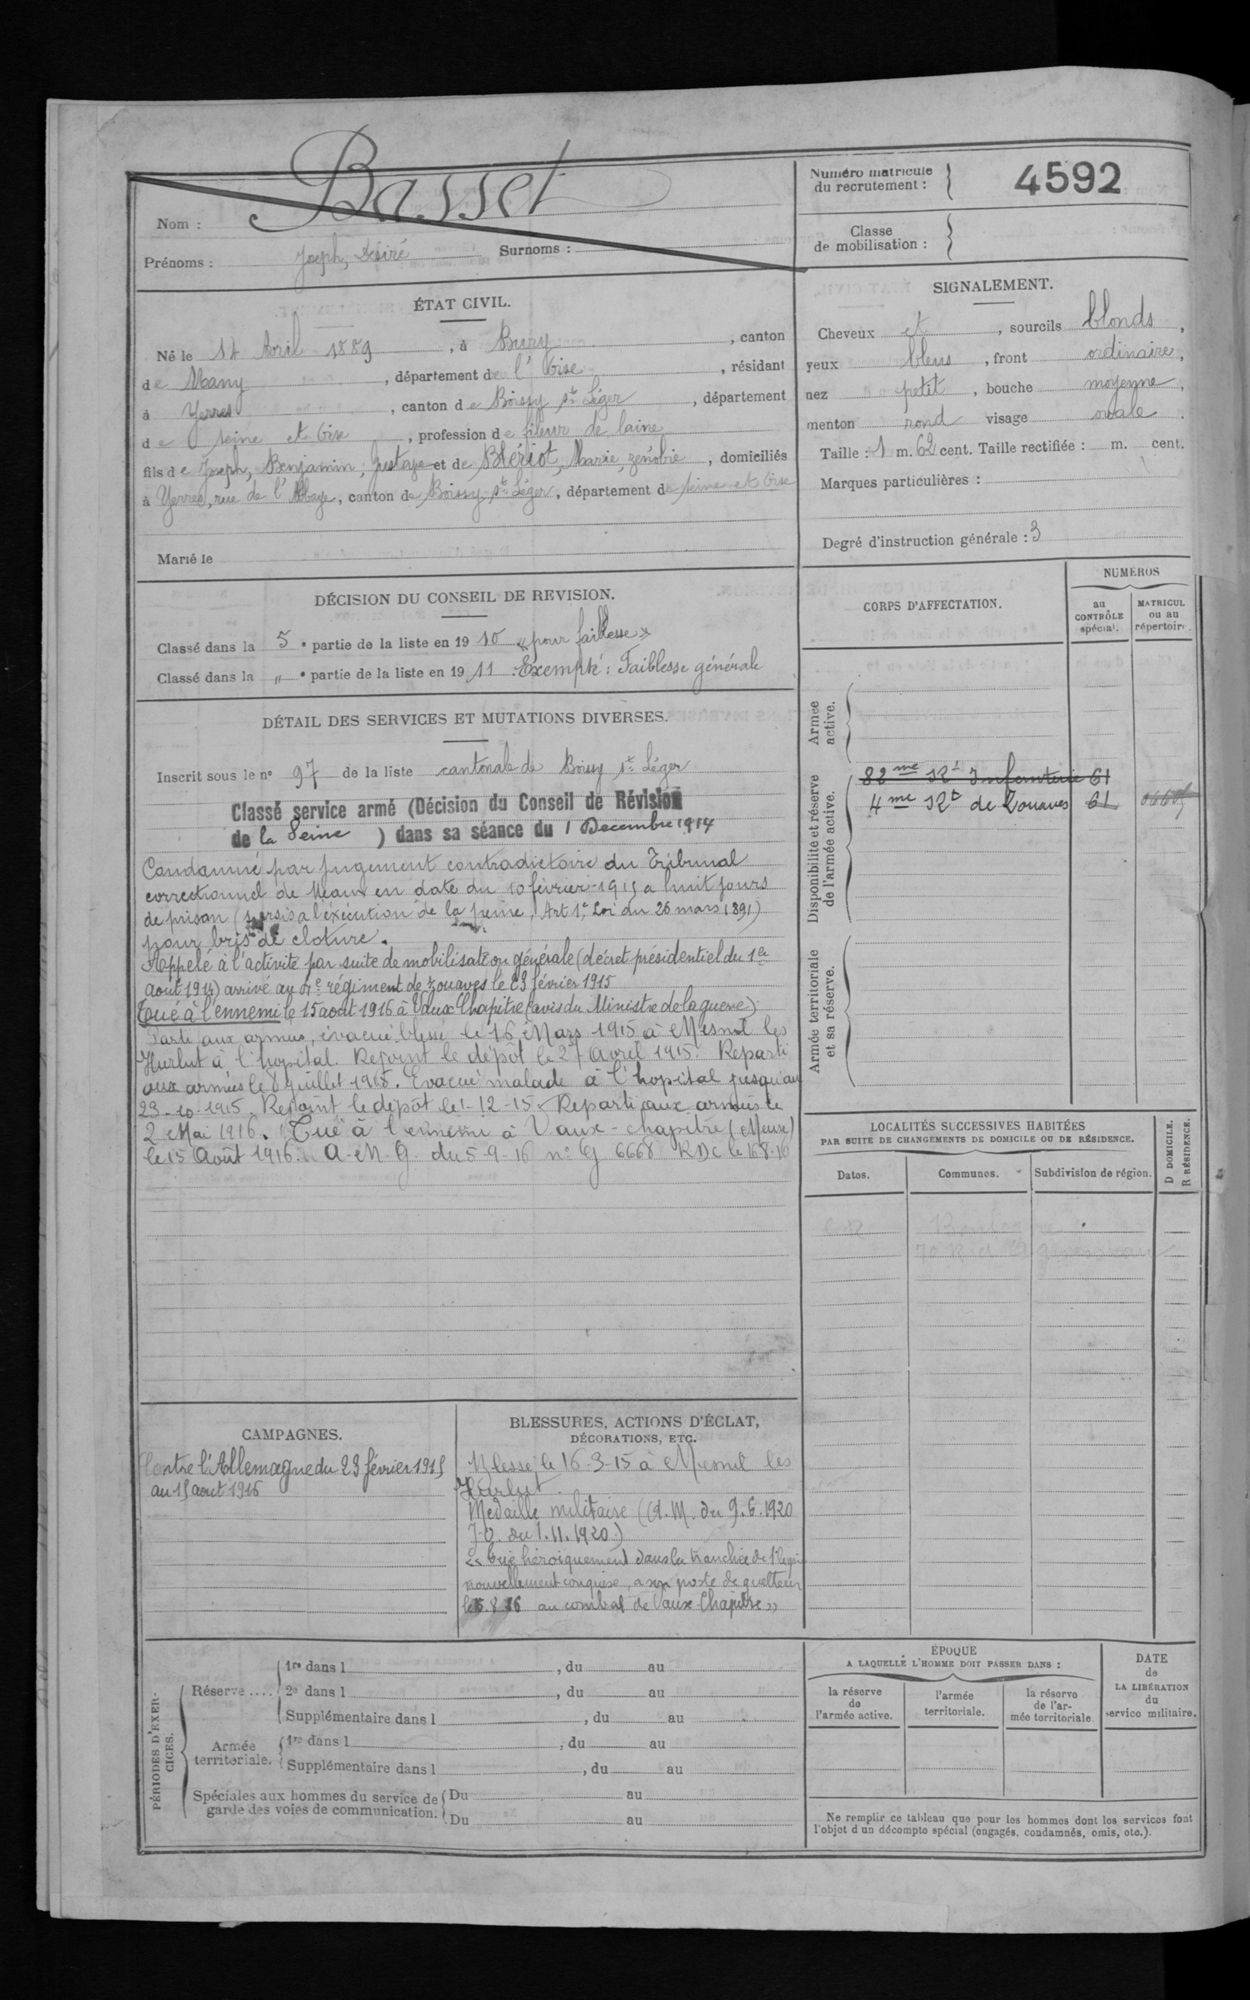 Nom : Basset
Prénoms : Joseph, Désiré Surnoms :
Numéro matricule du recrutement : 4592
Classe de mobilisation :
ÉTAT CIVIL.
Né le 14 Avril 1889, à Bury, canton
de Mouy, département de l'Oise, résidant
à Yerres, canton de Boissy St Léger, département
de Seine et Oise, profession de fileur de laine
fils de Joseph, Benjamin, Gustave et de Blériot, Marie, Zénobie, domiciliés
à Yerres, rue de l'Abbaye, canton de Boissy St Léger, département de Seine et Oise
Marié le
SIGNALEMENT.
Cheveux et, sourcils blonds,
yeux bleus, front ordinaire,
nez petit, bouche moyenne,
menton rond visage ovale.
Taille : 1 m. 62 cent. Taille rectifiée : m. cent.
Marques particulières :
Degré d'instruction générale : 3
DÉCISION DU CONSEIL DE REVISION.
Classé dans la 5e partie de la liste en 1910 « pour faiblesse »
Classé dans la " e partie de la liste en 1911. Exempté : Faiblesse générale
DÉTAIL DES SERVICES ET MUTATIONS DIVERSES.
Inscrit sous le no 97 de la liste cantonale de Boissy St Léger
Classé service armé (Décision du Conseil de Révision
de la Seine ) dans sa séance du 1 Decembre 1914
Condamné par jugement contradictoire du Tribunal
correctionnel de Meaux en date du 10 février 1915 a huit jours
de prison (sursis a l'exécution de la peine, Art 1er Loi du 26 mars 1891)
pour bris de cloture.
Appelé à l'activité par suite de mobilisation générale (décret présidentiel du 1er
août 1914) arrivé au 4e régiment de zouaves le 23 février 1915
Tué à l'ennemi le 15 août 1916 à Vaux Chapitre (avis du Ministre de la guerre)
Parti aux armées, évacué blessé le 16 Mars 1915 à Mesnil les
Hurlut à l'hopital. Rejoint le dépôt le 27 Avril 1915. Reparti
aux armées le juillet 1915. Evacué malade à l'hopital jusqu'au
23-10-1915. Rejoint le dépôt le 1-12-15. Reparti aux armées le
2 Mai 1916. Tué à l'ennemi à Vaux-chapitre (Meuse)
le 15 Août 1916. A.M.G. du 5-9-16 no 6668 RDC le 16 8-16
CORPS D'AFFECTATION.
NUMÉROS
au CONTRÔLE spécial.
MATRICULE ou au répertoire.
Armée active.
Disponibilité et réserve de l'armée active.
82me Rt Infanterie 61
4me Rt de Zouaves 61
Armée territoriale et sa réserve.
LOCALITÉS SUCCESSIVES HABITÉES
PAR SUITE DE CHANGEMENTS DE DOMICILE OU DE RÉSIDENCE.
Dates. Communes. Subdivision de région.
D DOMICILE. R RÉSIDENCE.
CAMPAGNES.
Contre l'Allemagne du 23 février 1915
au 15 aout 1916
BLESSURES, ACTIONS D'ÉCLAT,
DÉCORATIONS, ETC.
Blessé le 16-3-15 à Mesnil les
Hurlut.
Medaille militaire (A.M. du 9.6.1920
J.O. du 1.11.1920.)
« Tué héroiquement dans la tranchée de
nouvellement conquise, a son poste de guetteur
le 15.8.16 au combat de Vaux-Chapitre »
PÉRIODES D'EXERCICES.
Réserve ....
1re dans 1 , du au
2e dans 1 , du au
Supplémentaire dans 1 , du au
Armée territoriale.
1re dans 1 , du au
Supplémentaire dans 1 , du au
Spéciales aux hommes du service de garde des voies de communication.
Du au
Du au
ÉPOQUE
A LAQUELLE L'HOMME DOIT PASSER DANS :
la réserve de l'armée active.
l'armée territoriale.
la réserve de l'armée territoriale
DATE de LA LIBÉRATION du service militaire.
Ne remplir ce tableau que pour les hommes dont les services font
l'objet d'un décompte spécial (engagés, condamnés, omis, etc.).